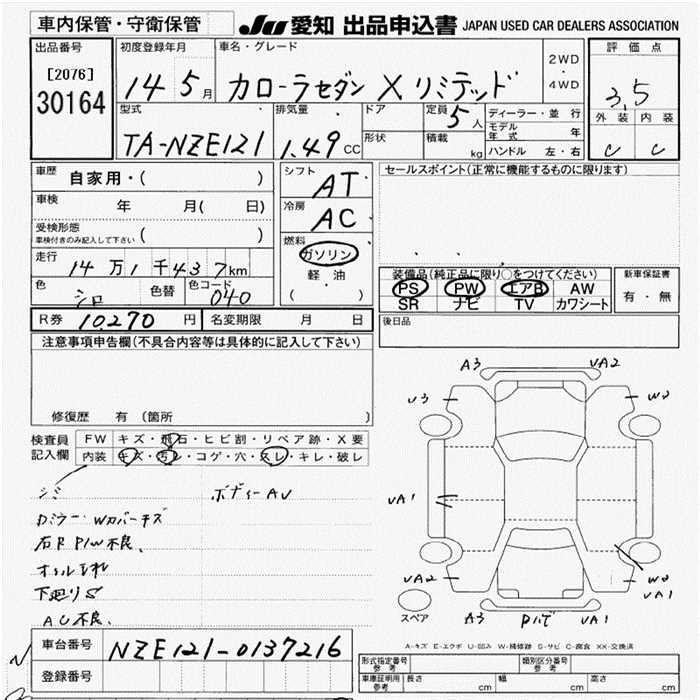 車内保管・守衛保管 JU 愛知 出品申込書 JAPAN USED CAR DEALERS ASSOCIATION
出品番号 初度登録年月 車名・グレード 2WD・4WD 評価点
[2076]
30164 14 5月 カローラセダン X リミテッド 3.5
型式 排気量 ドア 定員 5人 ディーラー・並行 外装 内装
TA-NZE121 1.49CC 形状 積載 kg モデル年式 年 C C
ハンドル 左・右
車歴 自家用・( ) シフト AT セールスポイント(正常に機能するものに限ります)
車検 年 月( 日) 冷房 AC
受検形態 ( )
車検付きのみ記入して下さい
燃料 ガソリン
軽・油
( )
走行 14万1千437km
色 シロ 色替 色コード 040
装備品(純正品に限り○をつけてください) 新車保証書
PS PW エアB AW 有・無
SR ナビ TV カワシート
R券 10,270円 名変期限 月 日 後日品
注意事項申告欄(不具合内容等は具体的に記入して下さい)
修復歴 有(箇所 )
検査員記入欄 FW キズ・飛石・ヒビ割・リペア跡・X要
内装 キズ・汚レ・コゲ・穴・スレ・キレ・破レ
シミ ボディーAU
Dミラー・Wカバーキズ
石R P/W不良、
オイルもれ
下廻りS
AC不良、
A3 UA2
U3 W2
UA1
UA2 W2
UA1
スペア A3 Pハゲ UA1
A-キズ E-エクボ U-凹み W-補修跡 S-サビ C-腐食 XX-交換済
車台番号 NZE121-0137216
登録番号
N
形式指定番号 参考 類別区分番号 参考
車庫証明用 参考 長さ cm 幅 cm 高さ cm